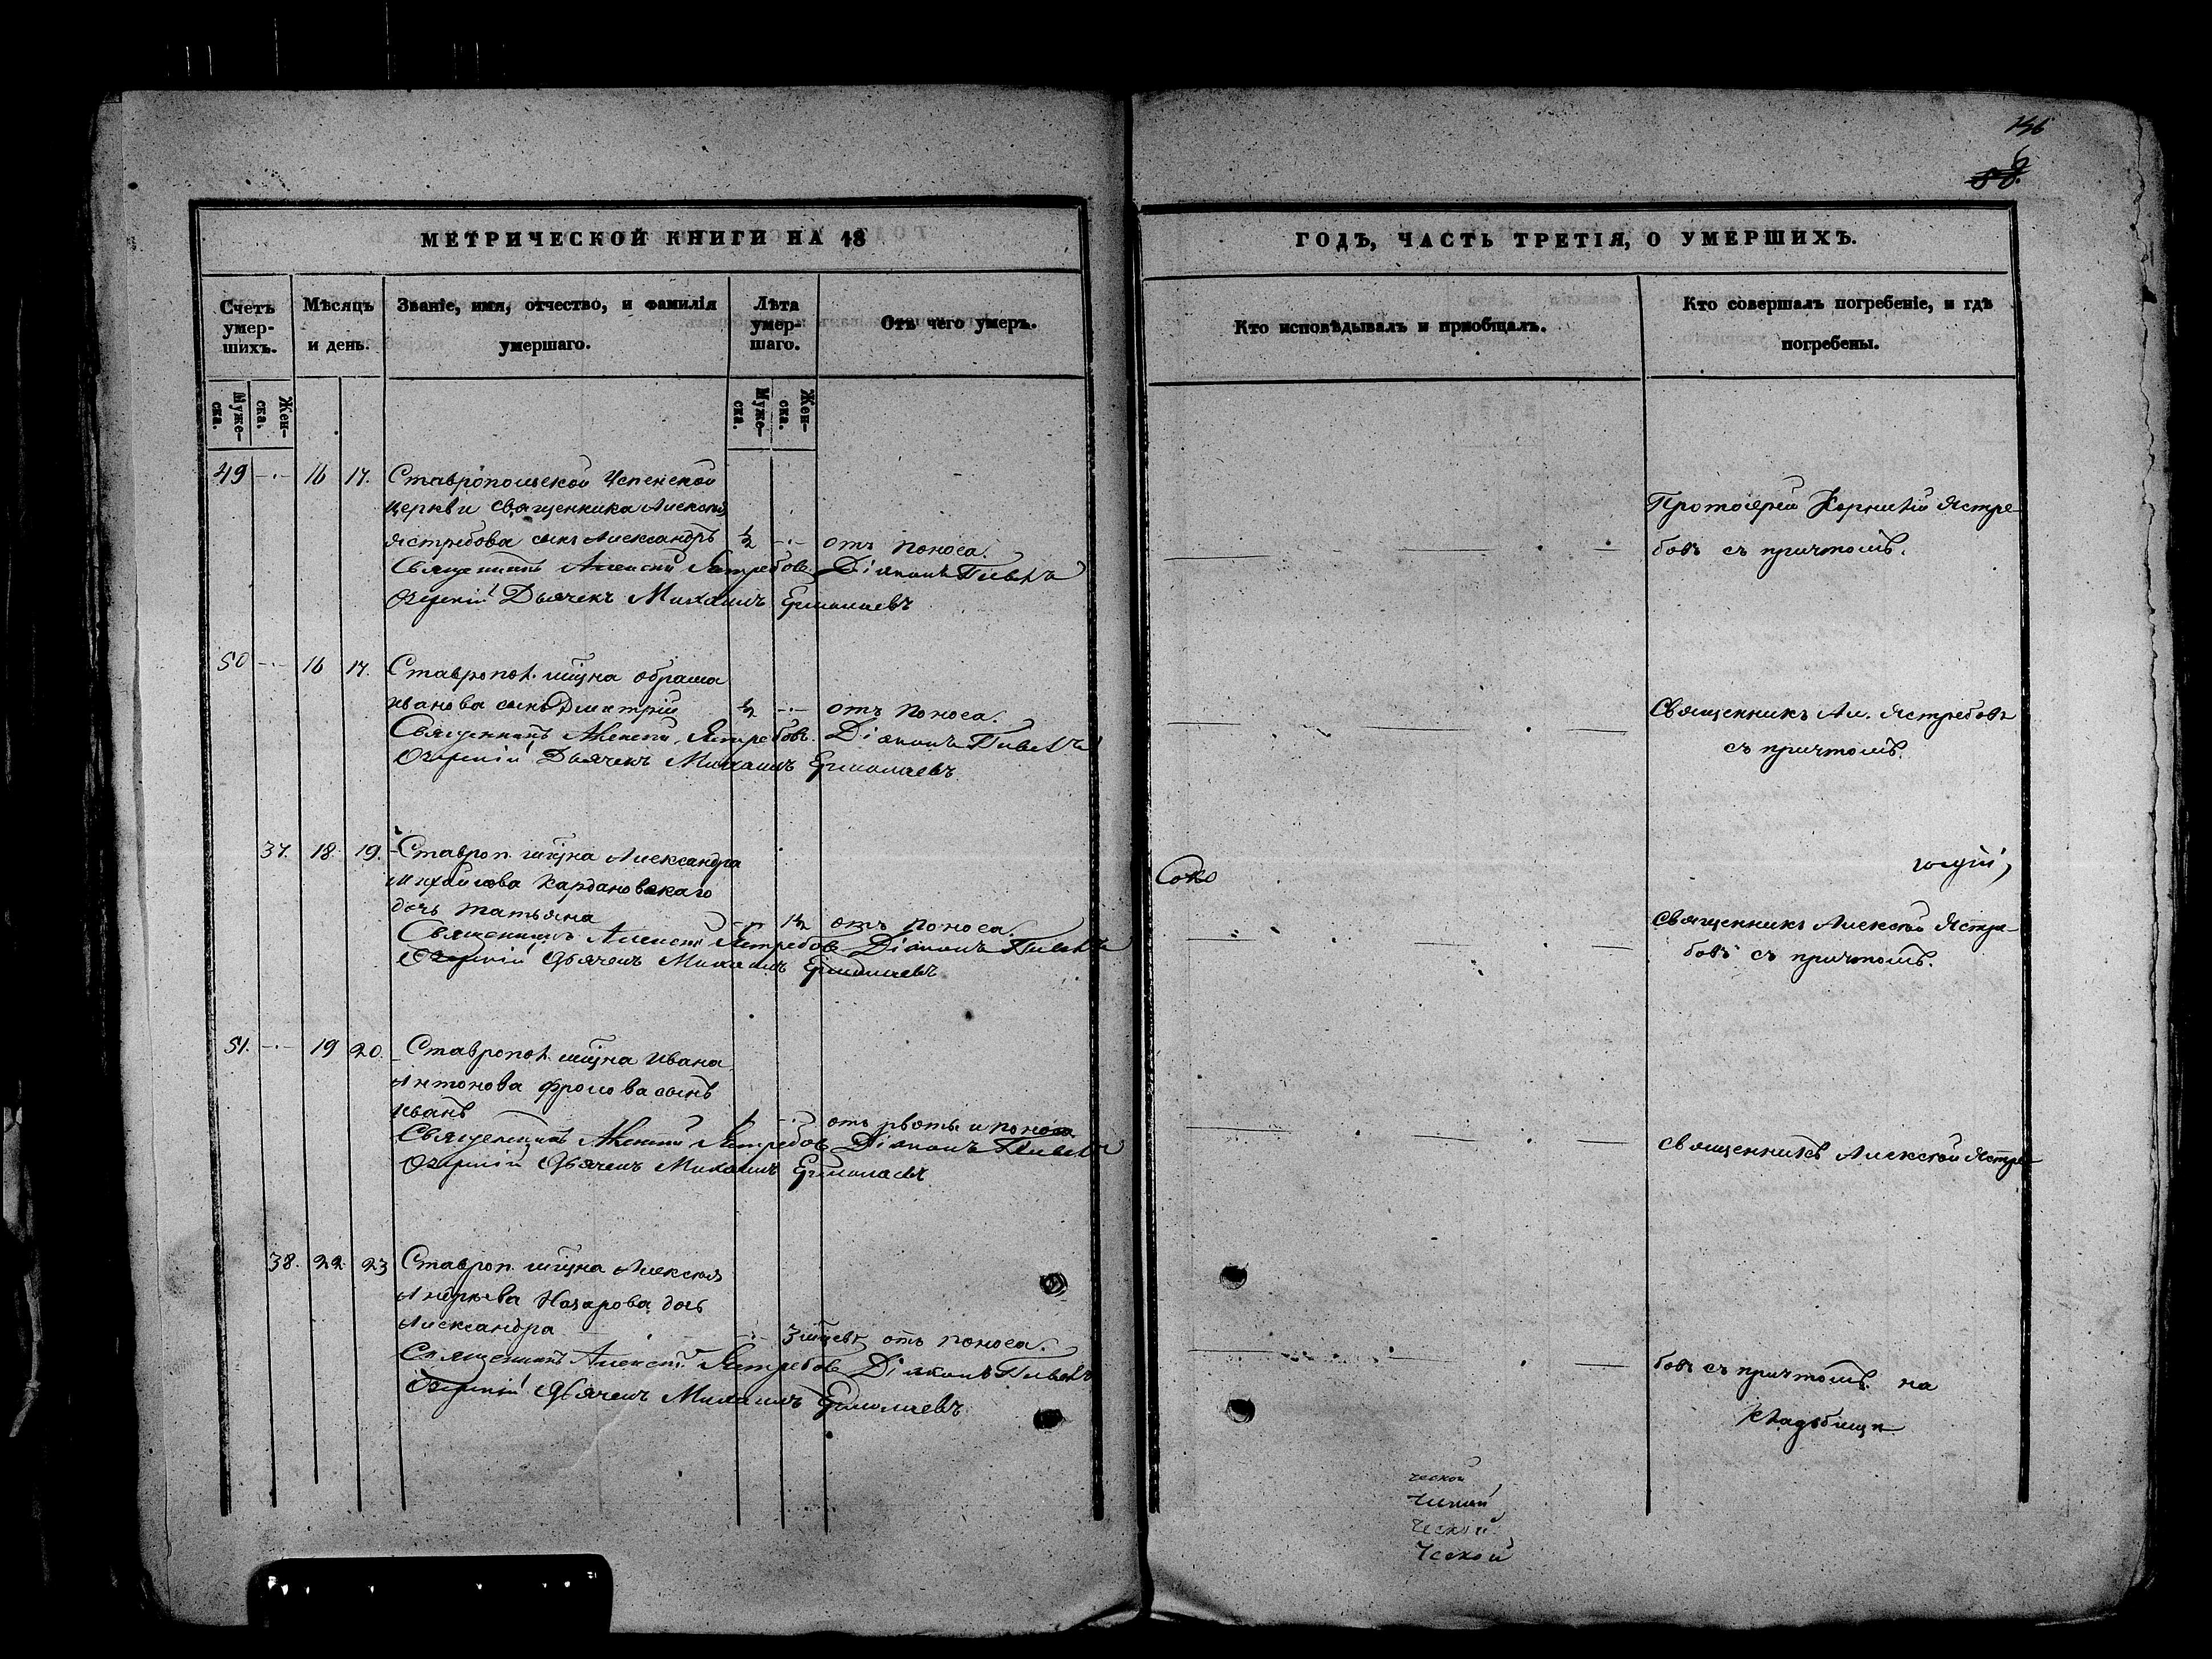 146
МЕТРИЧЕСКОЙ КНИГИ НА 18
ГОДЪ, ЧАСТЬ ТРЕТІЯ, О УМЕРШИХЪ.
Счетъ умер-шихъ.
Мѣсяцъ и день.
Званіе, имя, отчество, и фамилія умершаго.
Лѣта умер-шаго.
Отъ чего умеръ.
Кто исповѣдывалъ и пріобщалъ.
Кто совершалъ погребеніе, и гдѣ погребены.
Муже-ска.
Жен-ска.
Муже-ска.
Жен-ска.
49 -·- 16 17. Ставропольской Успенской
церкви священника Алексѣя
Ястребова сынъ Александръ ½ -·- отъ поноса.
Священникъ Алексѣй Ястребовъ Діаконъ Павелъ
Озерскій Дьячекъ Михаилъ Ермолаевъ
Протоіерей Корнилій Ястре-
бовъ съ причтомъ.
50 -·- 16 17. Ставропол. мщна Абрама
Иванова сынъ Дмитрій ½ -·- отъ поноса.
Священникъ Алексѣй Ястребовъ. Діаконъ Павелъ
Озерскій Дьячекъ Михаилъ Ермолаевъ
Священникъ Ал. Ястребовъ
съ причтомъ.
37. 18. 19. Ставроп. мщна Александра
Михайлова Кардановскаго
дочь Татьяна 1½ отъ поноса.
Священникъ Алексѣй Ястребовъ Діаконъ Павелъ
Озерскій Дьячекъ Михаилъ Ермолаевъ
Священникъ Алексѣй Ястре-
бовъ съ причтомъ.
51. -·- 19 20. Ставропол. мщна Ивана
Антонова Фролова сынъ
Иванъ 1 -·- отъ рвоты и поноса
Священникъ Алексѣй Ястребовъ Діаконъ Павелъ
Озерскій Дьячекъ Михаилъ Ермолаевъ
Священникъ Алексѣй Ястре-
38. 22. 23 Ставроп. мщна Алексѣя
Андреева Назарова дочь
Александра -·- 3 мцевъ отъ поноса.
Священникъ Алексѣй Ястребовъ Діаконъ Павелъ
Озерскій Дьячекъ Михаилъ Ермолаевъ
бовъ съ причтомъ на
кладбищѣ
ческой
ческій
ческой